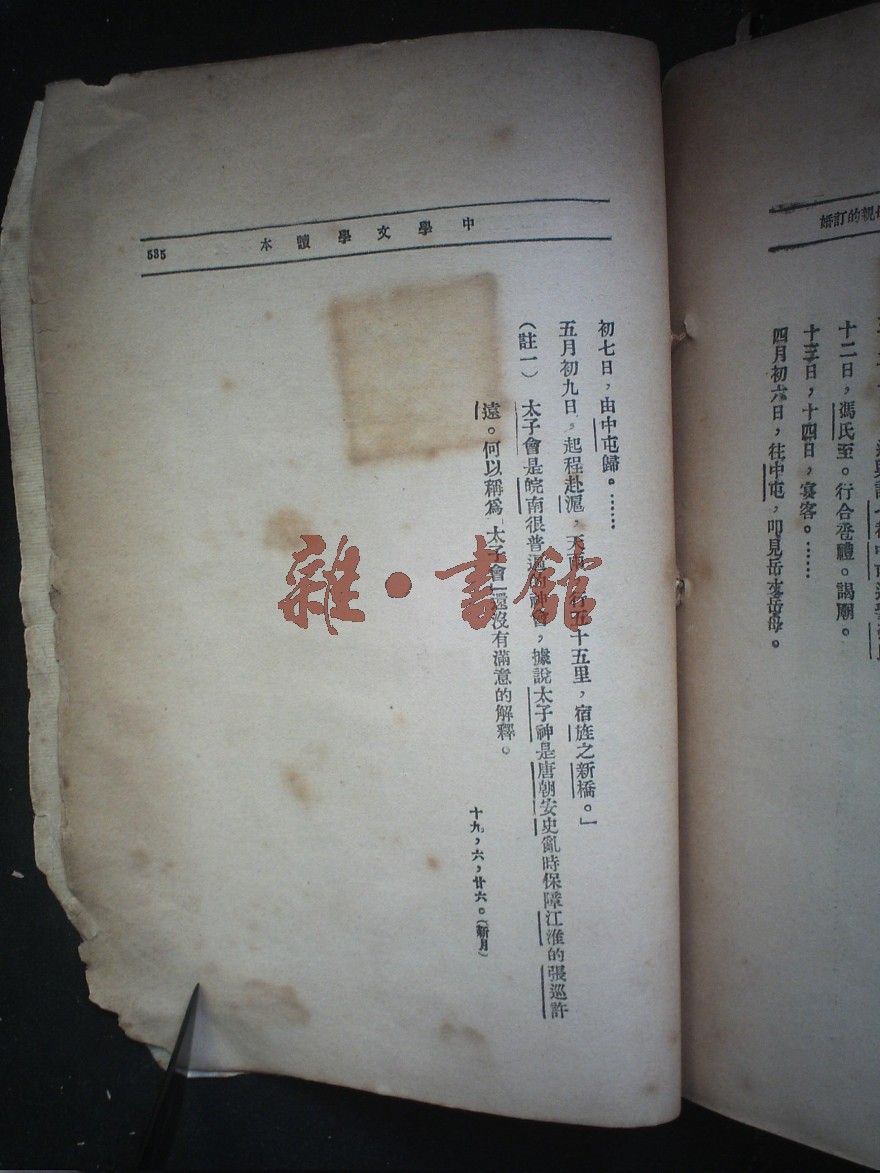 婚訂的親
十二日，馮氏至。行合卺禮。謁廟。
十三日，十四日，宴客。……
四月初六日，往中屯，叩見岳丈岳母。
中學文學讀本
535
初七日，由中屯歸。……
五月初九日，起程赴滬，天雨，行五十五里，宿旌之新橋。」
（註一）太子會是皖南很普遍的神會，據說太子神是唐朝安史亂時保障江淮的張巡許
遠。何以稱爲「太子會」還沒有滿意的解釋。
十九，六，廿六。（新月）
雜·書館